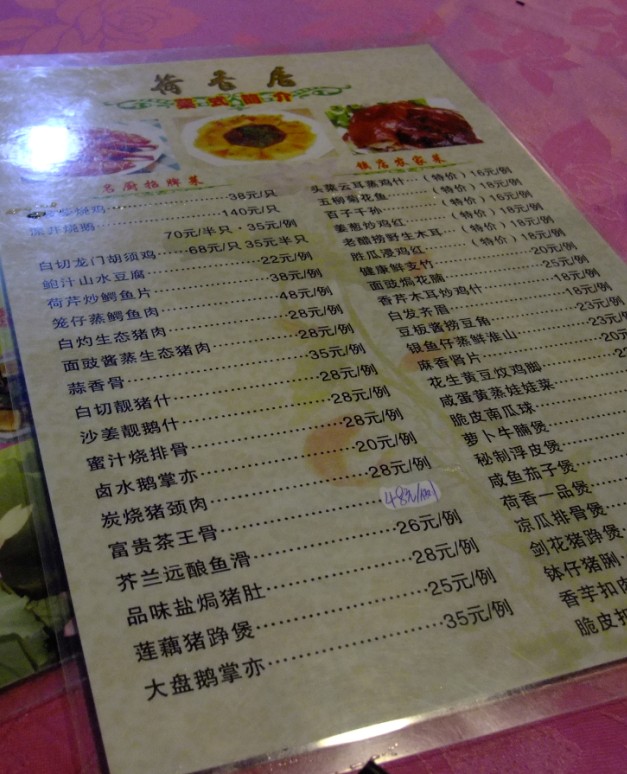 荷香居
菜式简介
名厨招牌菜
烧鸡 38元/只
深井烧鹅 140元/只
70元/半只·35元/例
白切龙门胡须鸡 68元/只 35元半只
鲍汁山水豆腐 22元/例
荷芹炒鳄鱼片 38元/例
笼仔蒸鳄鱼肉 48元/例
白灼生态猪肉 28元/例
面豉酱蒸生态猪肉 28元/例
蒜香骨 35元/例
白切靓猪什 28元/例
沙姜靓鹅什 28元/例
蜜汁烧排骨 28元/例
卤水鹅掌亦 20元/例
炭烧猪颈肉 28元/例
富贵茶王骨 48元/例
芥兰远酿鱼滑 26元/例
品味盐焗猪肚 28元/例
莲藕猪踭煲 25元/例
大盘鹅掌亦 35元/例
镇店农家菜
头菜云耳蒸鸡什 (特价)16元/例
五柳菊花鱼 (特价)18元/例
百子千孙 (特价)16元/例
姜葱炒鸡红 (特价)18元/例
老醋捞野生木耳 (特价)18元/例
胜瓜浸鸡红 (特价)18元/例
健康鲜支竹 20元/例
面豉焗花腩 25元/例
香芹木耳炒鸡什 18元/例
白发齐眉 18元/例
豆板酱捞豆角 23元/例
银鱼仔蒸鲜淮山 23元/
麻香肾片 20元
花生黄豆炆鸡脚
咸蛋黄蒸娃娃菜
脆皮南瓜球
萝卜牛腩煲
秘制浮皮煲
咸鱼茄子煲
荷香一品煲
凉瓜排骨煲
剑花猪踭煲
钵仔猪脷
香芋扣肉
脆皮扣